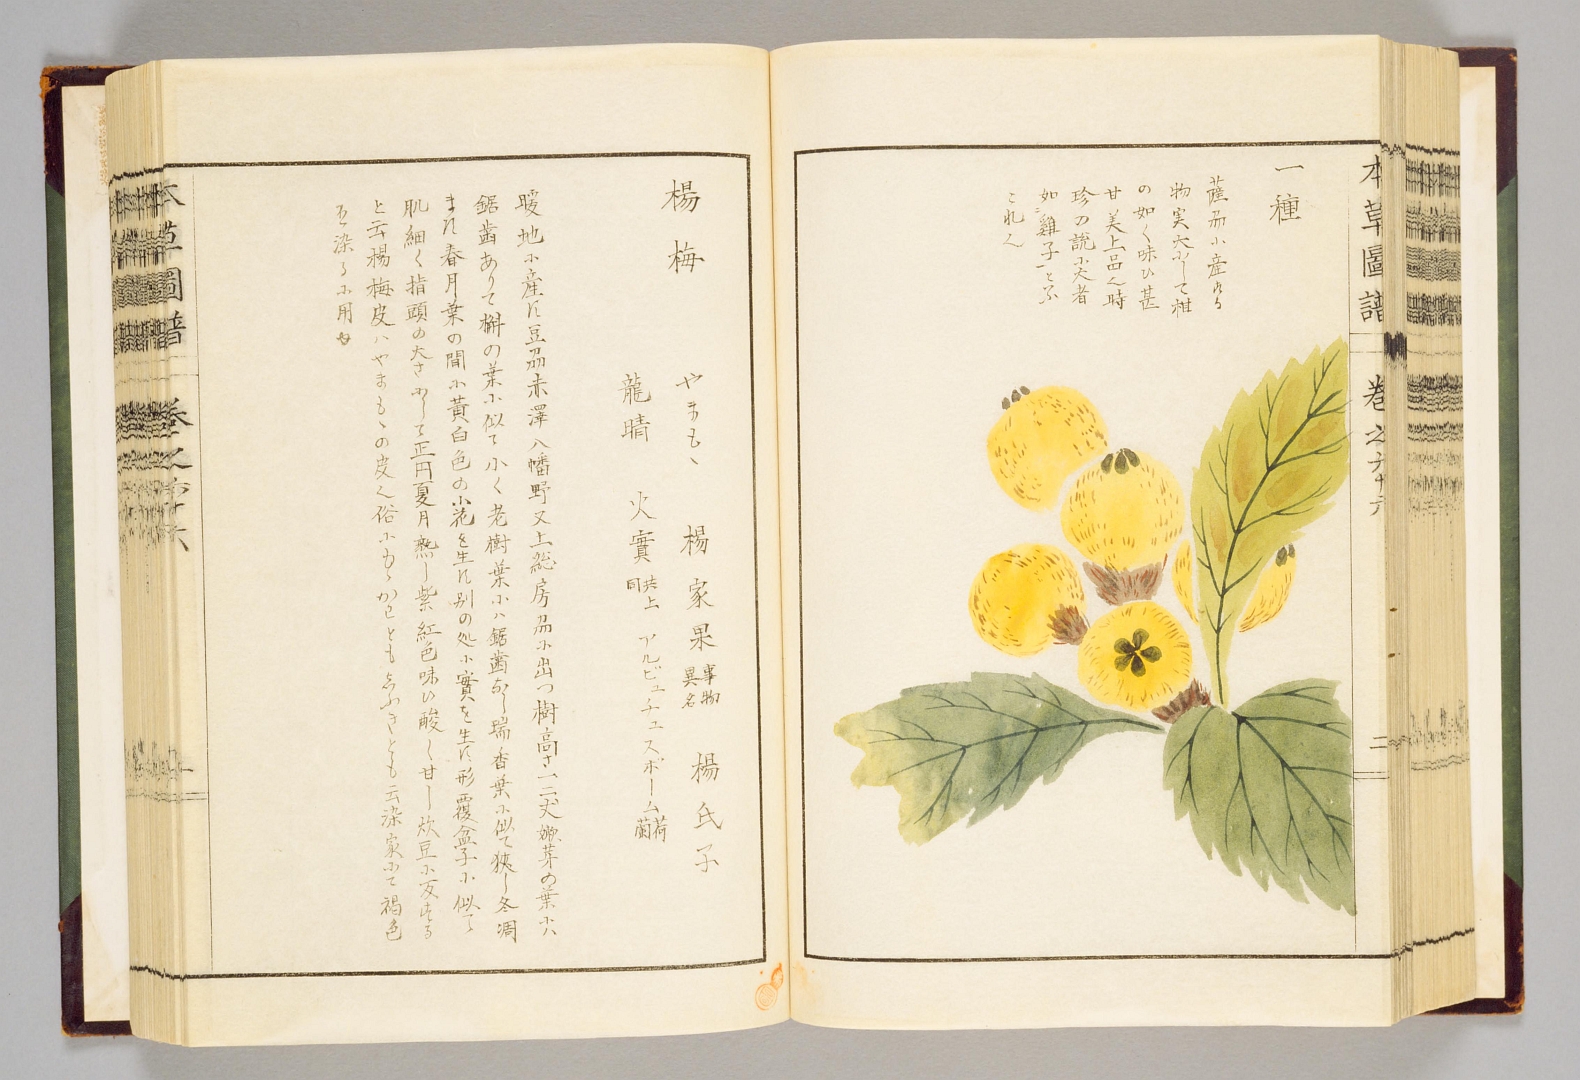 本草圖譜 巻之六十六 二
一種
薩州小産する
物実大小して柑
の如く味ひ甚
甘美上品也時
珍の説小大者
如雞子と云
これ也
楊梅
やまもゝ 楊家果 事物異名 楊氏子
龍晴 火實 共上同 アルビュチュスボーム 荷蘭
暖地小産す豆州赤澤八幡野又上総房州小出つ樹高さ一二丈嫩芽の葉小ハ
鋸歯ありて槲の葉小似て小く老樹葉小ハ鋸歯なし瑞香葉小似て狭し冬凋
まず春月葉の間小黄白色の小花を生す別の処小實を生す形覆盆子小似て
肌細く指頭の大さ小して正円夏月熟し紫紅色味ひ酸く甘し炊豆小友する
と云楊梅皮ハやまもゝの皮也俗小もゝかわとも志ぶきとも云染家小て褐色
を染る小用ゆ
本草圖譜